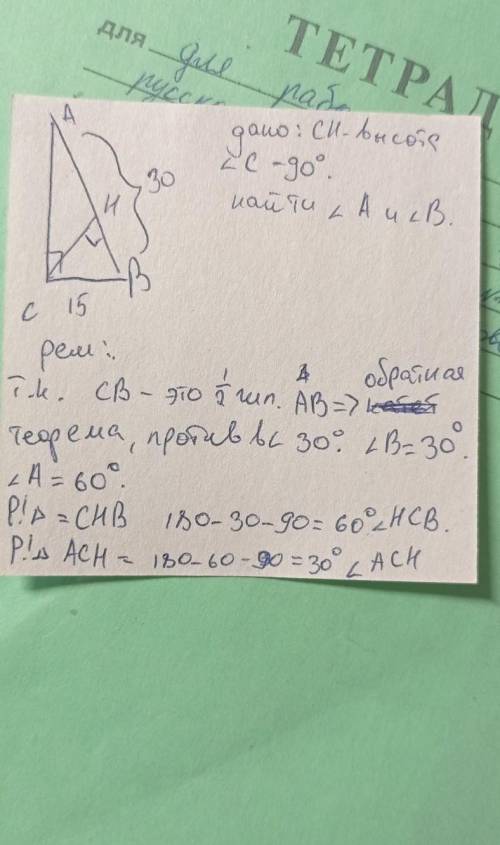 ТЕТРАД
для для
русск рабо
A
30
H
B
C 15
дано: CH-высота
∠C -90°.
найти ∠A и ∠B.
реш:.
Т.к. CB - это 1/2 гип. AB => обратная
теорема, против в∠ 30°. ∠B=30°.
∠A = 60°.
Р!△ = CHB 180-30-90= 60°∠HCB.
Р!△ ACH = 180-60-90=30°∠ACH